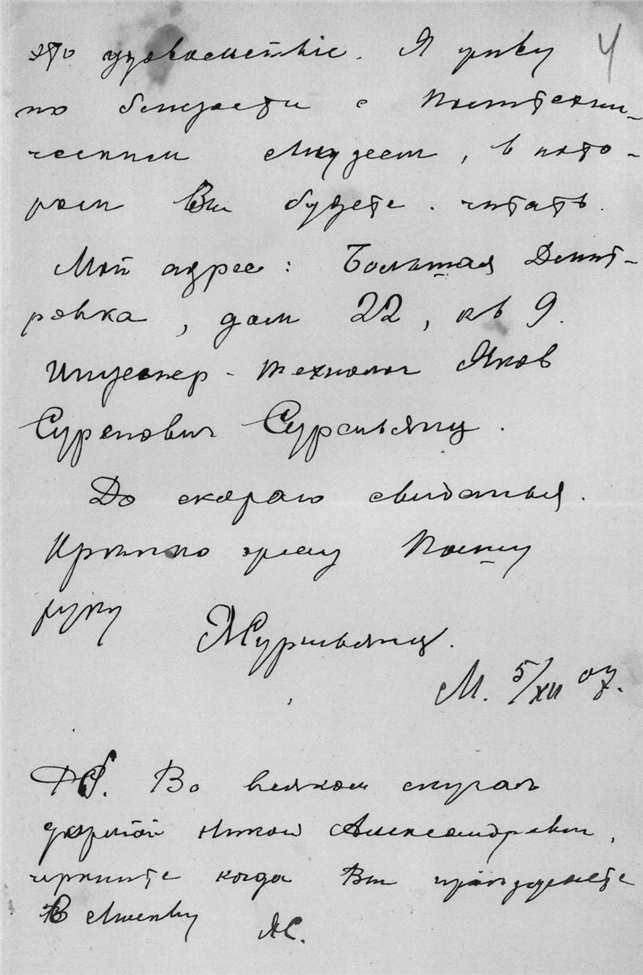 4
это удовольствіе. Я живу
по близости с Политехни-
ческим Музеем, в кото-
ром Вы будете читать.
Мой адрес: Большая Дмит-
ровка, дом 22, кв 9.
Инженер-технолог Яков
Суренович Сурсильянц.
До скораго свиданья.
Крепко жму Вашу
руку
М. 5/XII 07.
PS. Во всяком случае
дорогой Николай Александрович,
черкните когда Вы приезжаете
В Москву ЯС.